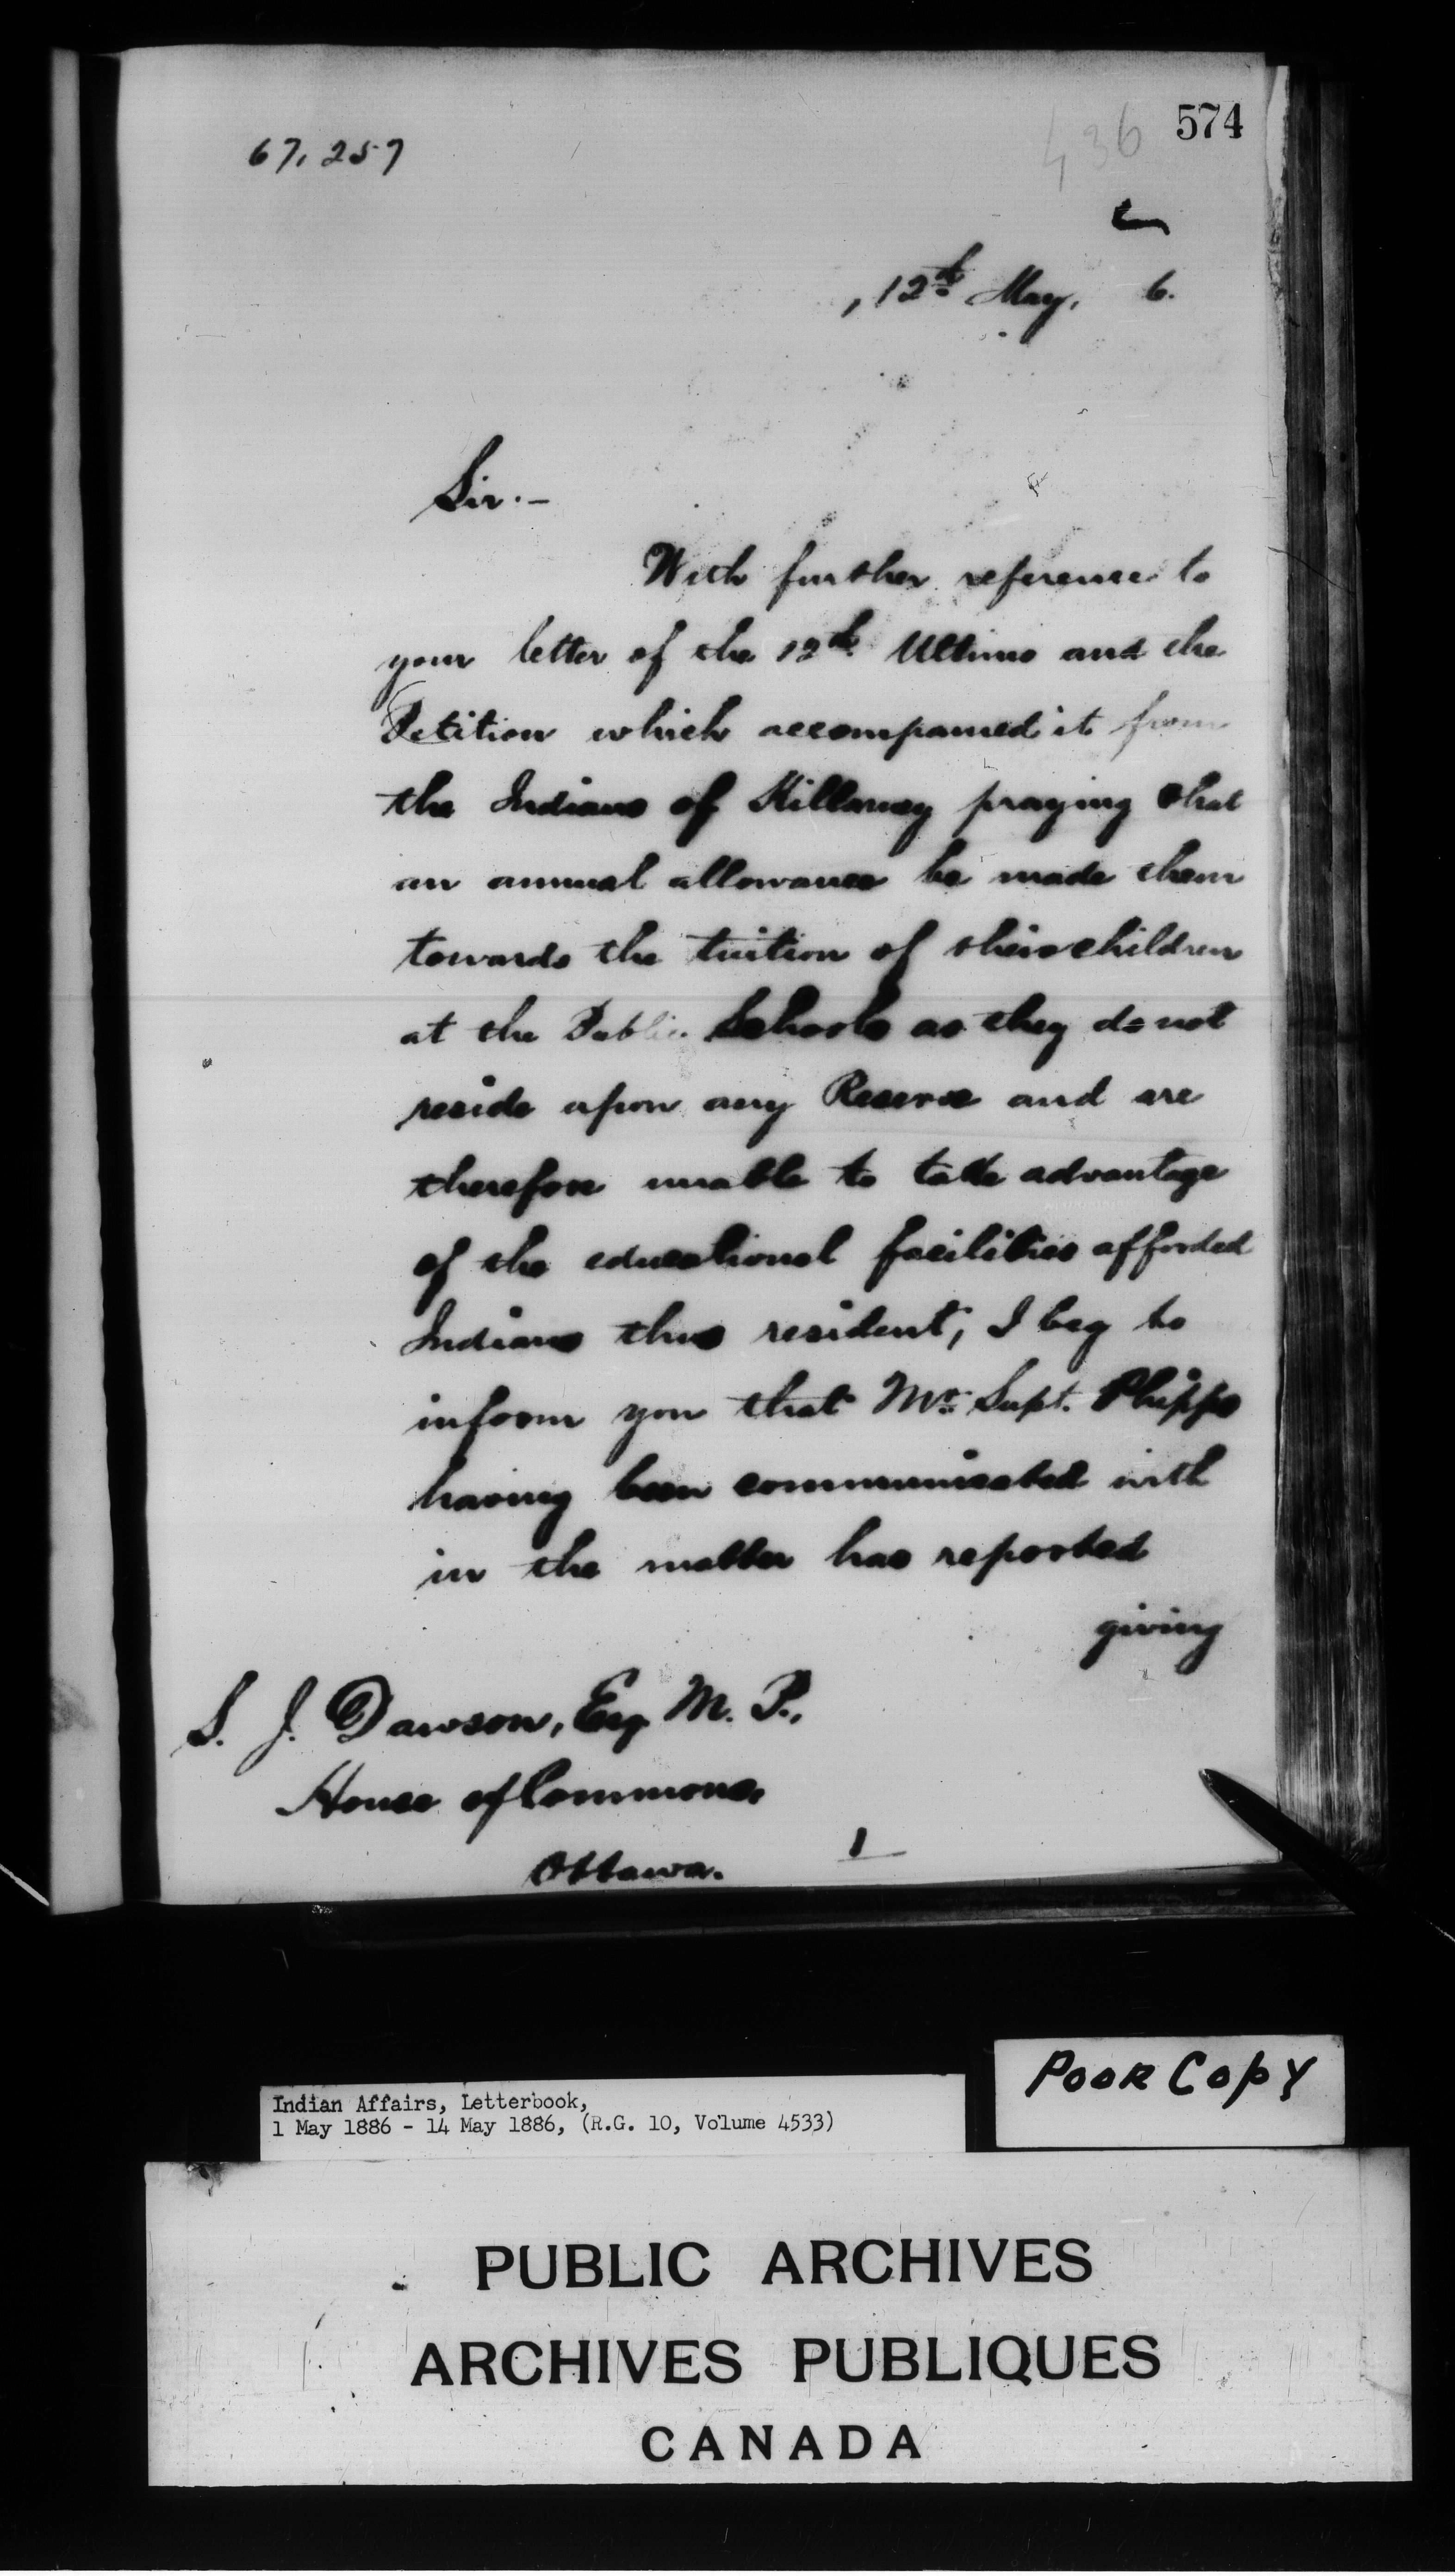 574
436
67,257
, 12th May, 6.
Sir.-
With further reference to
your letter of the 12th Ultimo and the
Petition which accompanied it from
the Indians of Killarney praying that
an annual allowance be made them
towards the tuition of their children
at the Public Schools as they do not
reside upon any Reserve and are
therefore unable to take advantage
of the educational facilities afforded
Indians thus resident, I beg to
inform you that Mr. Supt. Phipps
having been communicated with
in the matter has reported
giving
S. J. Dawson, Esq. M. P.,
House of Commons,
Ottawa.
1
Poor Copy
Indian Affairs, Letterbook,
1 May 1886 - 14 May 1886, (R.G. 10, Volume 4533)
PUBLIC ARCHIVES
ARCHIVES PUBLIQUES
CANADA